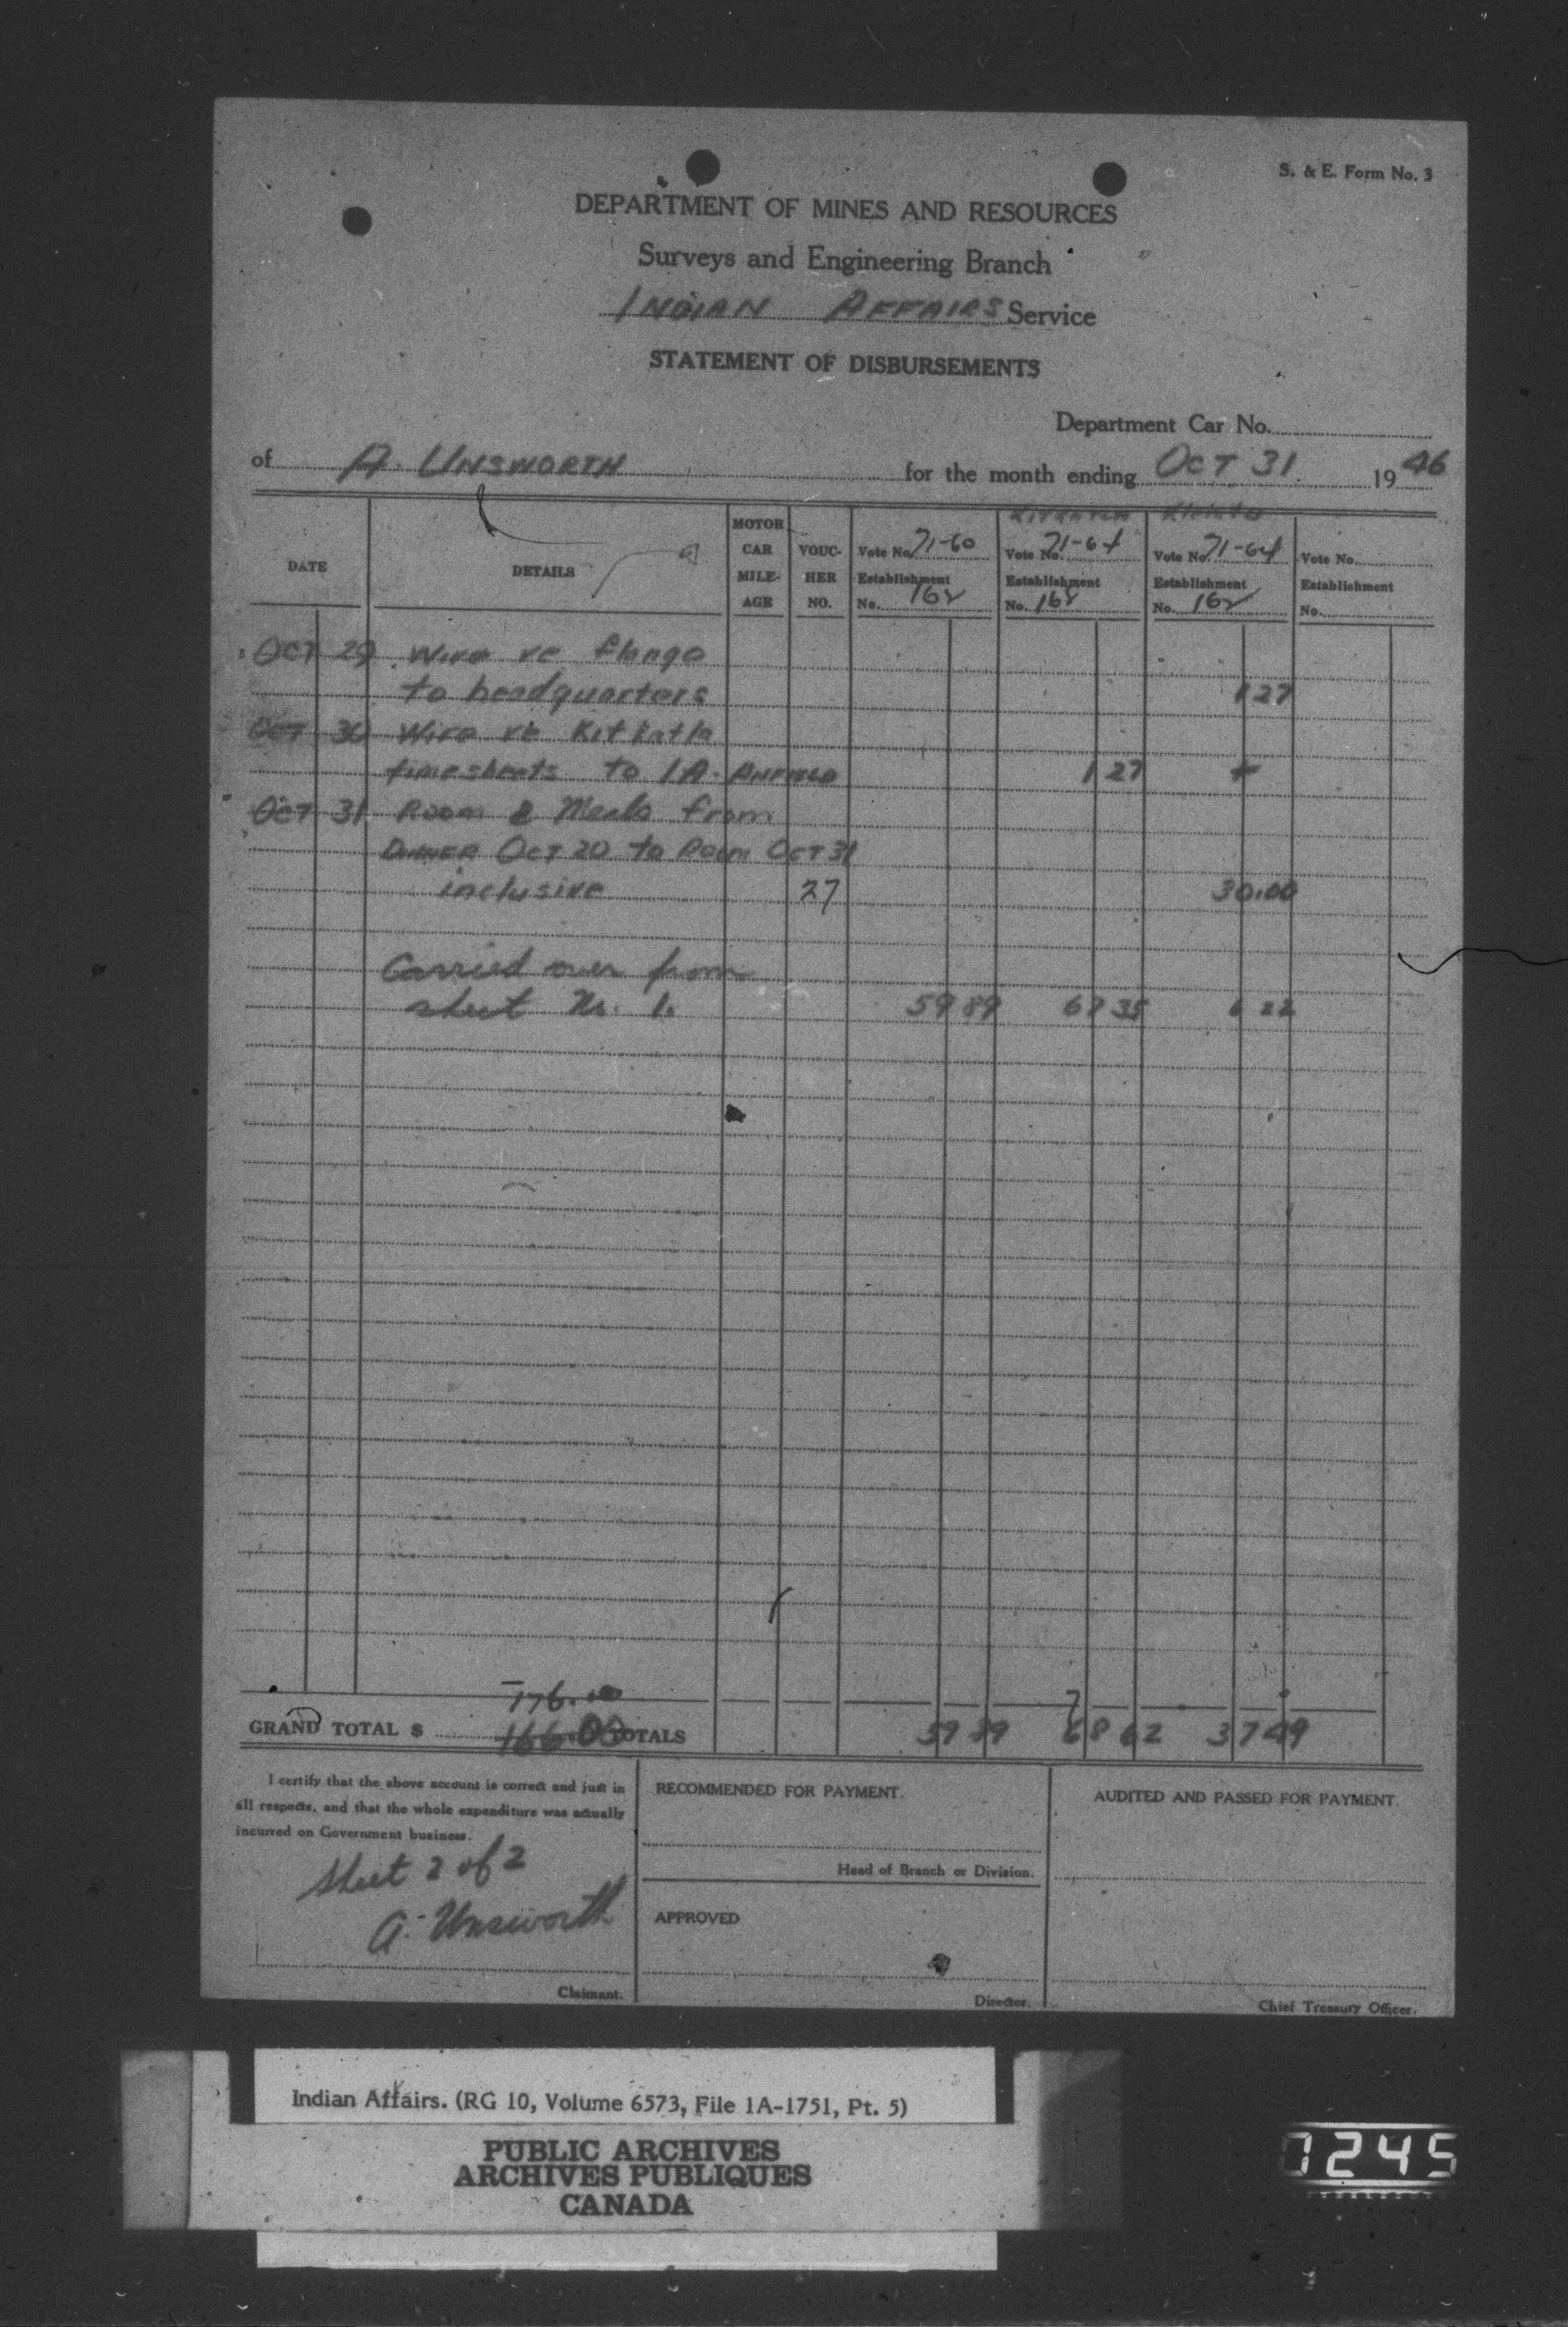 S. & E. Form No. 3
DEPARTMENT OF MINES AND RESOURCES
Surveys and Engineering Branch
INDIAN AFFAIRS Service
STATEMENT OF DISBURSEMENTS
Department Car No.
of A. UNSWORTH for the month ending OCT 31. 19 46
DATE DETAILS MOTOR CAR MILE-AGE VOUC-HER NO. Vote No. 71-60 Establishment No. 162 Vote No. 71-64 Establishment No. 168 Vote No. 71-64 Establishment No. 162 Vote No. Establishment No.
OCT 29 Wire re flange
to headquarters 1 27
OCT 30 Wire re Kitkatla
timesheets to I.A. ANFIELD 1 27
OCT 31 Room & Meals from
DINNER OCT 20 to Room OCT 31
inclusive 27 30.00
Carried over from
sheet No. 1. 59 89 67 35 6 22
176.00
GRAND TOTAL $ 166.00 TOTALS 59 89 68 62 37 49
I certify that the above account is correct and just in
all respects, and that the whole expenditure was actually
incurred on Government business.
Sheet 2 of 2
A. Unsworth
Claimant.
RECOMMENDED FOR PAYMENT.
Head of Branch or Division.
APPROVED
Director.
AUDITED AND PASSED FOR PAYMENT.
Chief Treasury Officer.
Indian Affairs. (RG 10, Volume 6573, File 1A-1751, Pt. 5)
PUBLIC ARCHIVES
ARCHIVES PUBLIQUES
CANADA
7245